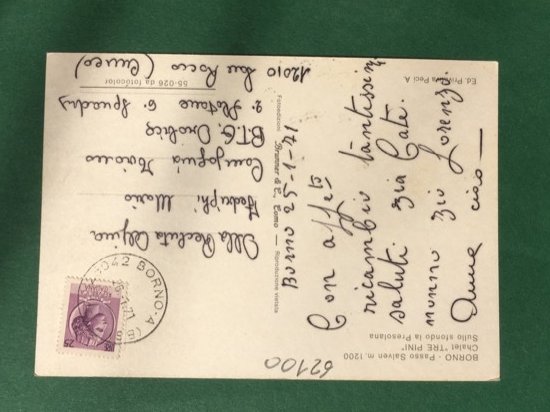 BORNO - Passo Salven m. 1200
Chalet "TRE PINI"
Sullo sfondo la Presolana
Borno 25-1-71
Con affetto
ricambio tantissimi
saluti zia Catè.
nonno zio Lorenzo.
Anna ciao —
Ed. Privata Peci A.
Fotoedizioni Brunner & C., Como — Riproduzione vietata
55-026 da fotocolor
BORNO
25
Alla Recluta Alpina
Fedrighi Mario
Compagnia
BTG. Orobico
2. Plotone 6. Squadra
12010 San Rocco (Cuneo)
62100